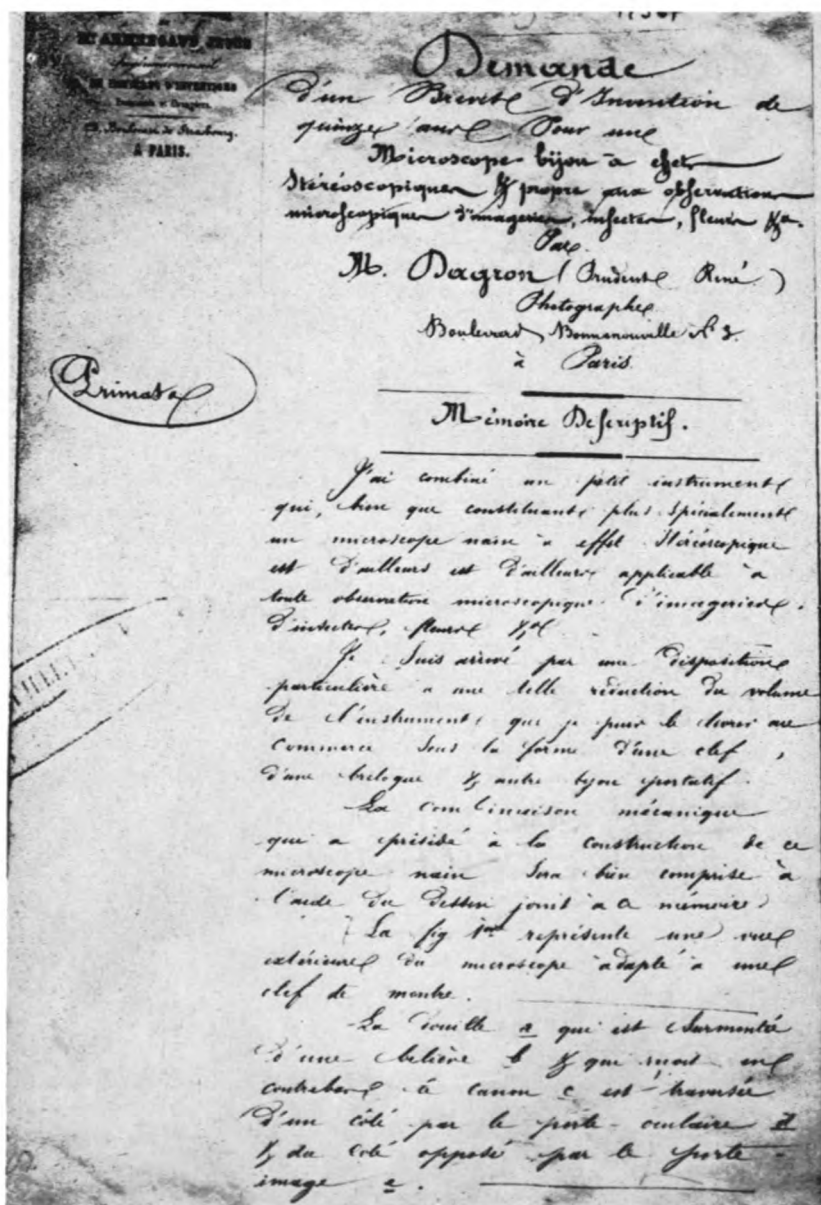 Mr ARMENGAUD JEUNE
DE BREVETS D'INVENTIONS
Boulevard de Strasbourg.
A PARIS.
Demande
d'un Brevet d'Invention de
quinze ans Pour une
Microscope-bijou à effet
Stéréoscopique & propre aux observations
microscopiques d'imageries, insectes, fleurs &a.
Par
M. Dagron (Prudent René)
Photographe
Boulevard Bonnenouville No 3.
à Paris.
Primata
Mémoire Descriptif.
J'ai combiné un petit instrument
qui, bien que constituant plus spécialement
un microscope nain à effet Stéréoscopique
est d'ailleurs est d'ailleurs applicable à
toute observation microscopique d'imageries,
d'insectes, fleurs &a
Je suis arrivé par une disposition
particulière a une telle réduction du volume
de l'instrument que je puis le livrer au
commerce sous la forme d'une clef,
d'une breloque & autre bijou portatif.
La combinaison mécanique
qui a présidé à la construction de ce
microscope nain sera bien comprise à
l'aide du dessin joint à ce mémoire
La fig 1ère représente une vue
extérieure du microscope adapté à une
clef de montre.
La douille a qui est surmontée
d'une belière b & que reçoit en
contrebas le canon c est traversée
d'un côté par le porte-oculaire d
& du coté opposé par le porte-
image e.